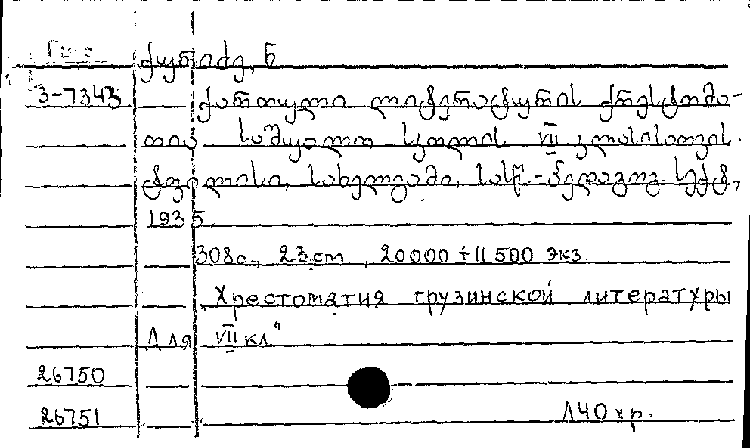 ქურიძე, ნ
3-7343 ქართული ლიტერატურის ქრესტომა-
თია საშუალო სკოლის VII კლასისათვის.
ტფილისი, სახელგამი, სას.-პედაგოგ. სექტ,
1935
308 с., 23 cm, 20000 + 11 500 экз
"Хрестоматия грузинской литературы
для VII кл"
26750
26751 Л40 хр.